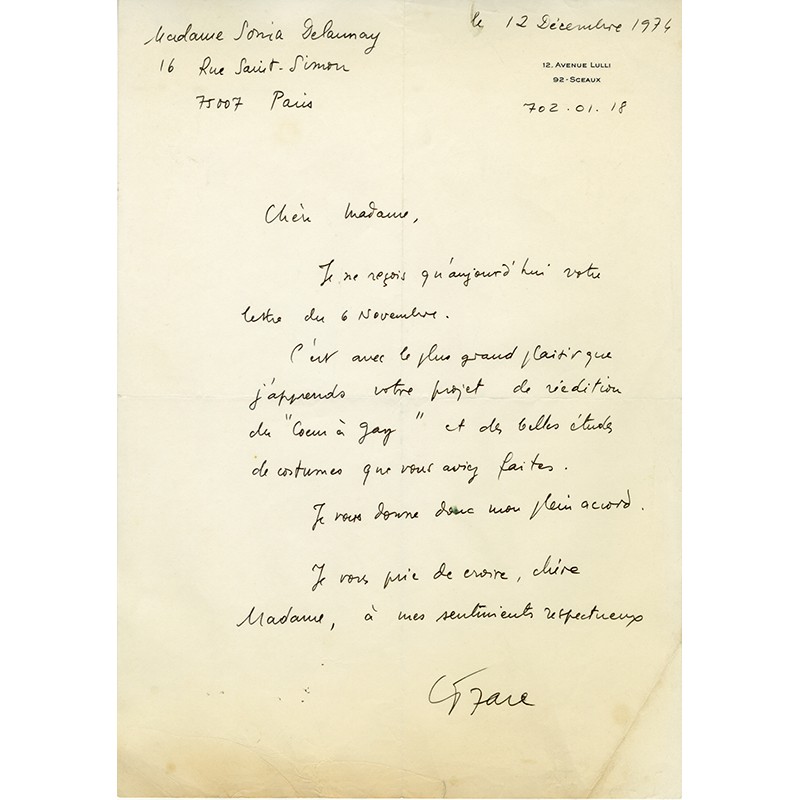 Madame Sonia Delaunay
16 Rue Saint-Simon
75007 Paris
le 12 Décembre 1974
12, AVENUE LULLI
92-SCEAUX
702.01.18
Chère Madame,
Je ne reçois qu'aujourd'hui votre
lettre du 6 Novembre.
C'est avec le plus grand plaisir que
j'apprends votre projet de réédition
du "Coeur à gaz" et des belles études
de costumes que vous aviez faites.
Je vous donne donc mon plein accord.
Je vous prie de croire, chère
Madame, à mes sentiments respectueux
Tzara